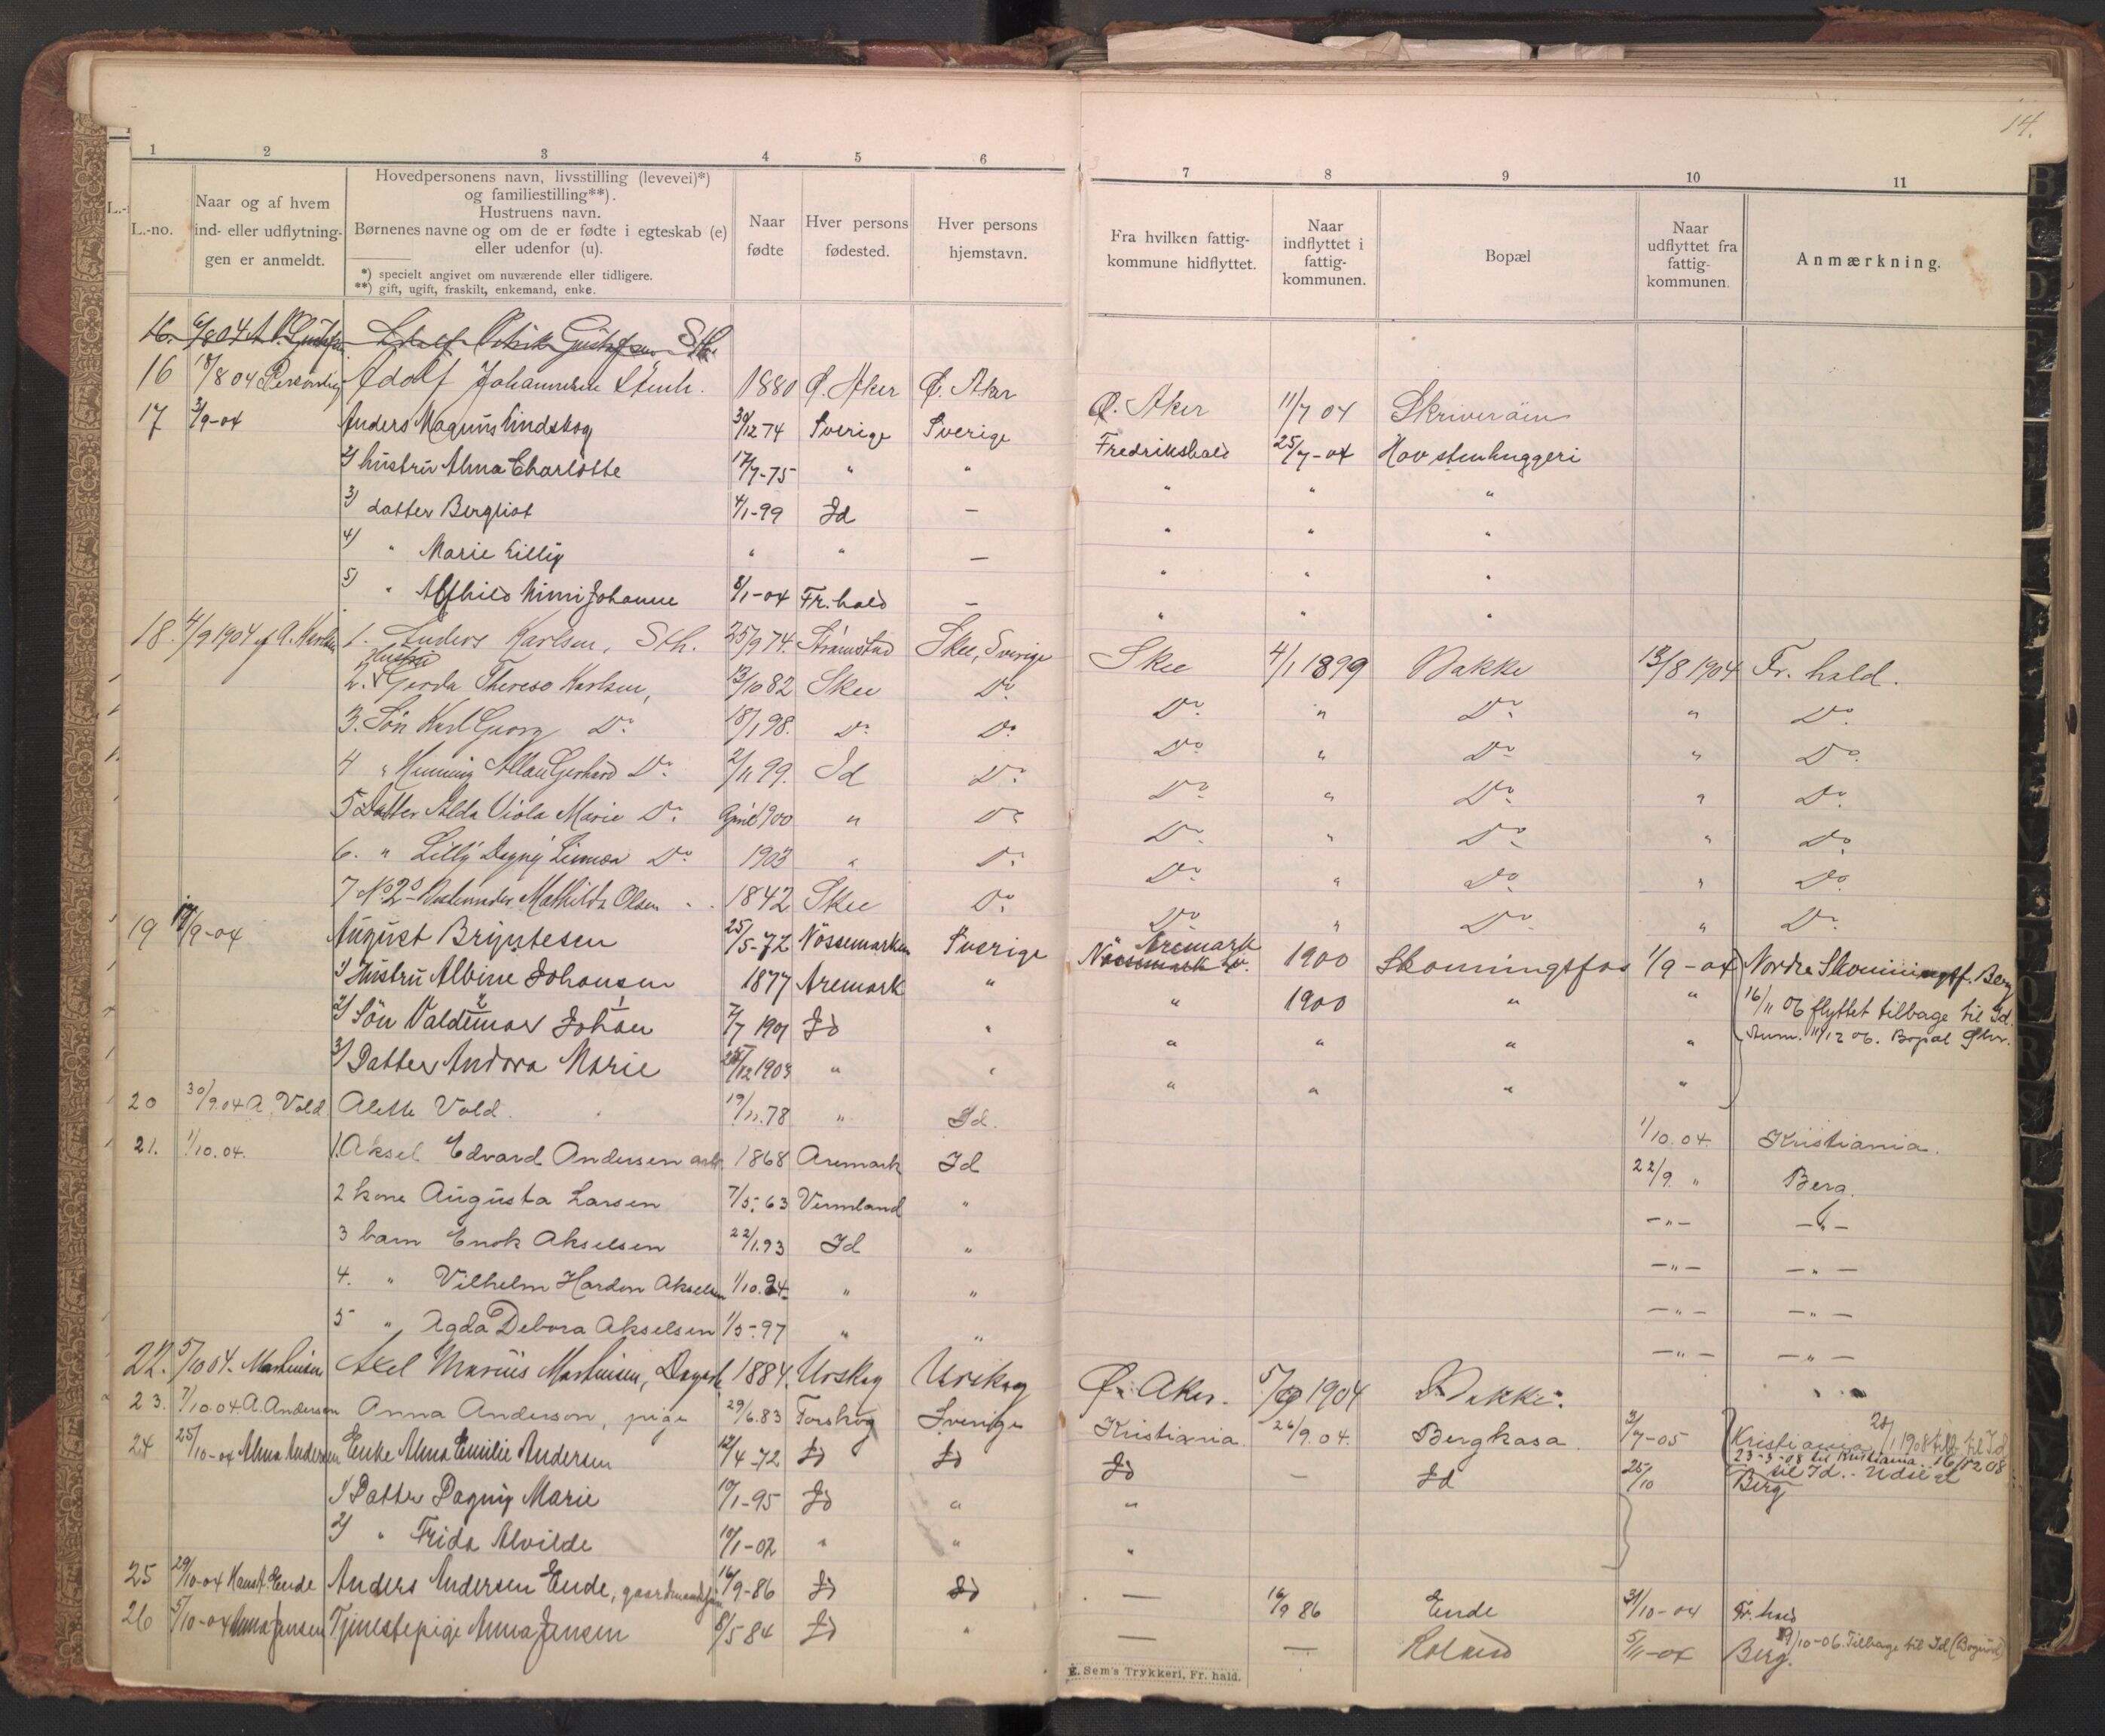 14.
1 2 3 4 5 6 7 8 9 10 11
L.-no.
Naar og af hvem
ind- eller udflytnin-
gen er anmeldt.
Hovedpersonens navn, livsstilling (levevei)*)
og familiestilling**).
Hustruens navn.
Børnenes navne og om de er fødte i egteskab (e)
eller udenfor (u).
*) specielt angivet om nuværende eller tidligere.
**) gift, ugift, fraskilt, enkemand, enke.
Naar
fødte
Hver persons
fødested.
Hver persons
hjemstavn.
Fra hvilken fattig-
kommune hidflyttet.
Naar
indflyttet i
fattig-
kommunen.
Bopæl
Naar
udflyttet fra
fattig-
kommunen.
Anmærkning.
16. 6/8 04 A. Gustafsen Gustafsen Sth.
16 18/8 04 Personlig Adolf Johannesen Stenh. 1880 Ø. Aker Ø. Aker Ø. Aker 11/7 04 Skriverøien
17 3/9-04 Anders Magnus Lindskog 30/12 74 Sverige Sverige Fredrikshald 25/7-04 Hov stenhuggeri
2) hustru Alma Charlotte 17/7-75 " " " " "
3) datter Bergliot 4/1-99 Id — " " "
4) " Marie Lilly " " — " " "
5) " Alfhild Mimi Johanne 8/1-04 Fr.hald — " " "
18. 4/9 1904 af A. Karlsen 1. Anders Karlsen, Sth. 25/9 74. Strømstad Skee, Sverige Skee 4/1 1899 Bakke 13/8 1904 Fr. hald.
Hustru
2. Gerda Theresa Karlsen, 13/10 82 Skee Do. Do. " Do. " Do.
3. Søn Karl Georg Do. 18/1 98. Do. Do. Do. " Do. " Do.
4 " Henning Allan Gerhard Do. 2/11 99. Id Do. Do. " Do. " Do.
5 Datter Alda Viola Marie Do. April 1900 " Do. Do. " Do. " Do.
6. " Lilly Dagny Do. 1903 " Do. Do. " Do. " Do.
7 No 2s Mathilda Olsen 1842 Skee Do. Do. " Do. " Do.
19 17/9-04 August Bryntesen 25/5-72 Nössemarken Sverige Aremark Nössemark Sv. 1900 Skonningsfos 1/9-04 Nordre Skonningsf. Berg
1) Hustru Albine Johansen 1877 Aremark " " 1900 " " 16/11 06 flyttet tilbage til Id.
2) Søn Valdemar Johan 7/7 1901 Id " " " " " Anm. 11/12 06. Bopæl
3) Datter Andora Marie 25/12 1903 " " " " " "
20 30/9.04 A. Vold Alette Vold. 19/11.78 " Id. 1/10.04. Kristiania.
21. 1/10.04. 1. Aksel Edvard Andersen arb. 1868 Aremark Id 22/9 " Berg.
2 kone Augusta Larsen 7/5.63 Vermland " —"— —"—
3 barn Enok Akselsen 22/1.93 Id " —"— —"—
4. " Vilhelm Hardon Akselsen 1/10.94. " " —"— —"—
5 " Agda Debora Akselsen 1/5-97 " " —"— —"—
22. 5/10 04. Martinsen Axel Marius Martinsen, 1884. Urskog Urskog Ø. Aker. 5/9 1904 Bakke.
23. 7/10.04. A. Anderson Anna Anderson, pige 29/6.83 Torskog Sverige Kristiania 26/9.04. Bergkasa 3/7-05 Kristiania 20/1 1908 tilb. til Id
23-3-08 til Kristiania. 16/12 08
til Id. -
24 25/10-04 Alma Andersen Enke Alma Emilie Andersen 12/4-72 Id Id Id — Id 25/10 Berg
1) Datter Dagny Marie 10/1-95 Id " "
2) " Frida Alvilde 10/1-02 " " "
25 29/10-04 Hans A. Ende Anders Andersen Ende, gaardmandssøn 16/9-86 Id Id — 16/9 86 Ende 31/10-04 Fr. hald
26 5/10-04 Anna Jensen Tjenestepige Anna Jensen 8/5 84 Id " — — 5/11-04 Berg. 29/10-06. Tilbage til Id
E. Sem's Trykkeri, Fr. hald.